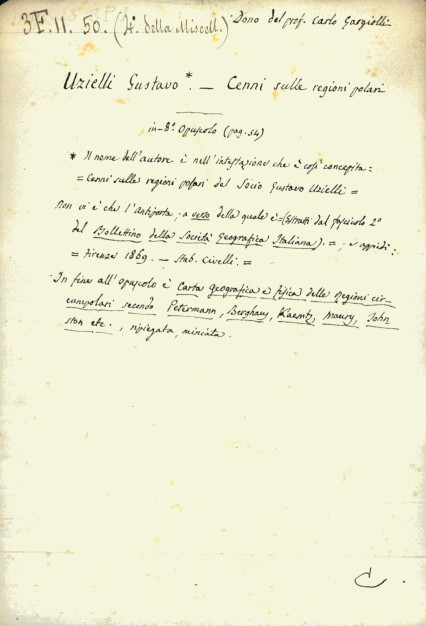 3F.11.50. (4ª della Miscell.) Dono del prof. Carlo Gargiolli
Uzielli Gustavo*. — Cenni sulle regioni polari
in-8º Opuscolo (pag. 54)
* Il nome dell'autore è nell'intestazione che è così concepita =
= Cenni sulle regioni polari del Socio Gustavo Uzielli =
Non vi è che l'Antiporta, a verso della quale è = (Estratti dal fascicolo 2º
del Bollettino della Società Geografica Italiana). = ; e appiedi:
= Firenze 1869. — Stab. Civelli. =
In fine all'opuscolo è Carta geografica e fisica delle Regioni cir-
cumpolari secondo Petermann, Berghaus, Kaemtz, Maury, John
ston etc., ripiegata, miniata.
C